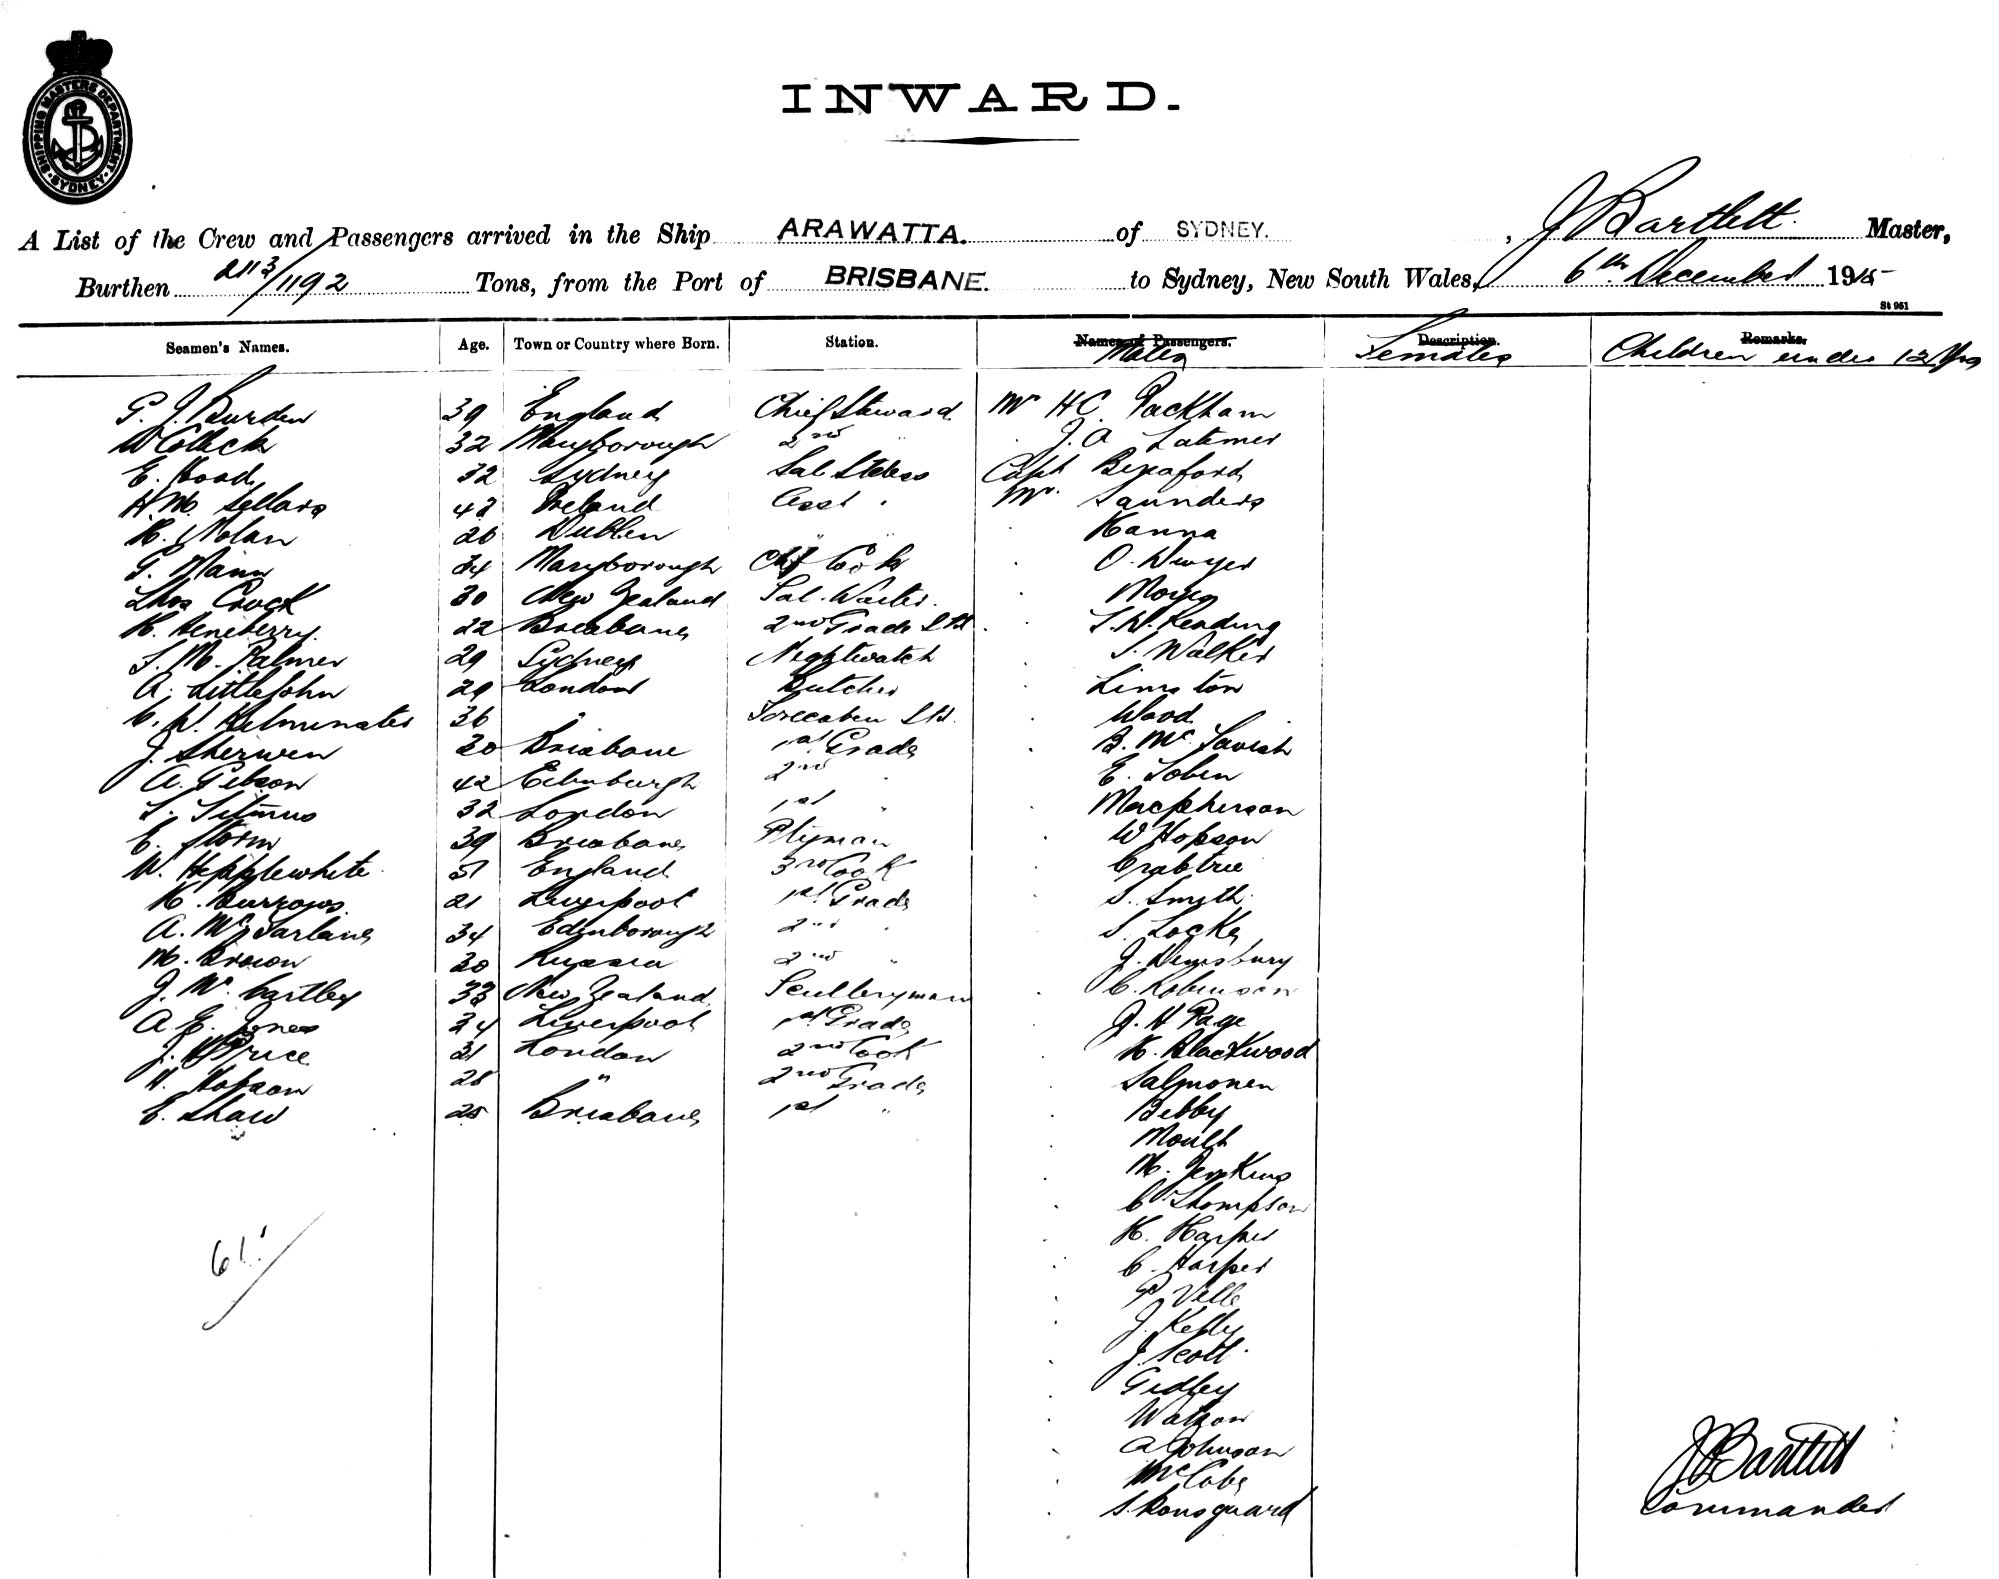 SHIPPING MASTERS DEPARTMENT SYDNEY
INWARD.
A List of the Crew and Passengers arrived in the Ship ARAWATTA. of SYDNEY. , J Bartlett Master,
Burthen 2113/1192 Tons, from the Port of BRISBANE. to Sydney, New South Wales, 6th December 1915
St 951
Seamen's Names. Age. Town or Country where Born. Station. Names of Passengers. Description. Remarks.
Males Females Children under 12 Yrs
G. J. Burden 39 England Chief Steward Mr H C Packham
W Colleck 32 Maryborough 2nd " J. A Latimer
E. Hood 32 Sydney Sal Stdess Capt
H. M. Sellars 42 Ireland Asst " Mr. Saunders
H. Nolan 26 Dublin " " Hanna
G. Mann 34 Maryborough Chf Cook O. Dwyer
Thos Crock 30 New Zealand Sal. Waiter. Moyes
H. Heneberry. 22 Brisbane 2nd Grade Std
S. M. Palmer 29 Sydney Nightwatch S. Walker
A. Littlejohn 29 London Butcher
36 " Wood
J. Sherwen 20 Brisbane 1st Grade B. Mc Tavish
A. Gibson 42 Edinburgh 2nd " E. Tobin
S. Titmus 32 London 1st " Macpherson
E. Storm 39 Brisbane W Hopson
W. Hepplewhite 51 England 3rd Cook Crabtree
H. Burrows. 21 Liverpool 1st Grade S. Smyth
A. McFarlane 34 Edinborough 2nd " S Locke
M. Brown 30 Russia 2nd " J. Dewsbury
J. W. Cartley 33 New Zealand Sculleryman C. Robinson
A. E. Jones 24 Liverpool 1st Grade J. H Page
J. H Price 31 London 2nd Cook H. Blackwood
H. Hopson 28 " 2nd Grade Salmonen
E. Shaw 25 Brisbane 1st " Bebby
Moult
M. Jenkins
C Thompson
H. Harper
C. Harper
P Velle
J. Kelly
J. Scott
Gidley
Watson
A Johnson
McCabe
61
J Bartlett
Commander